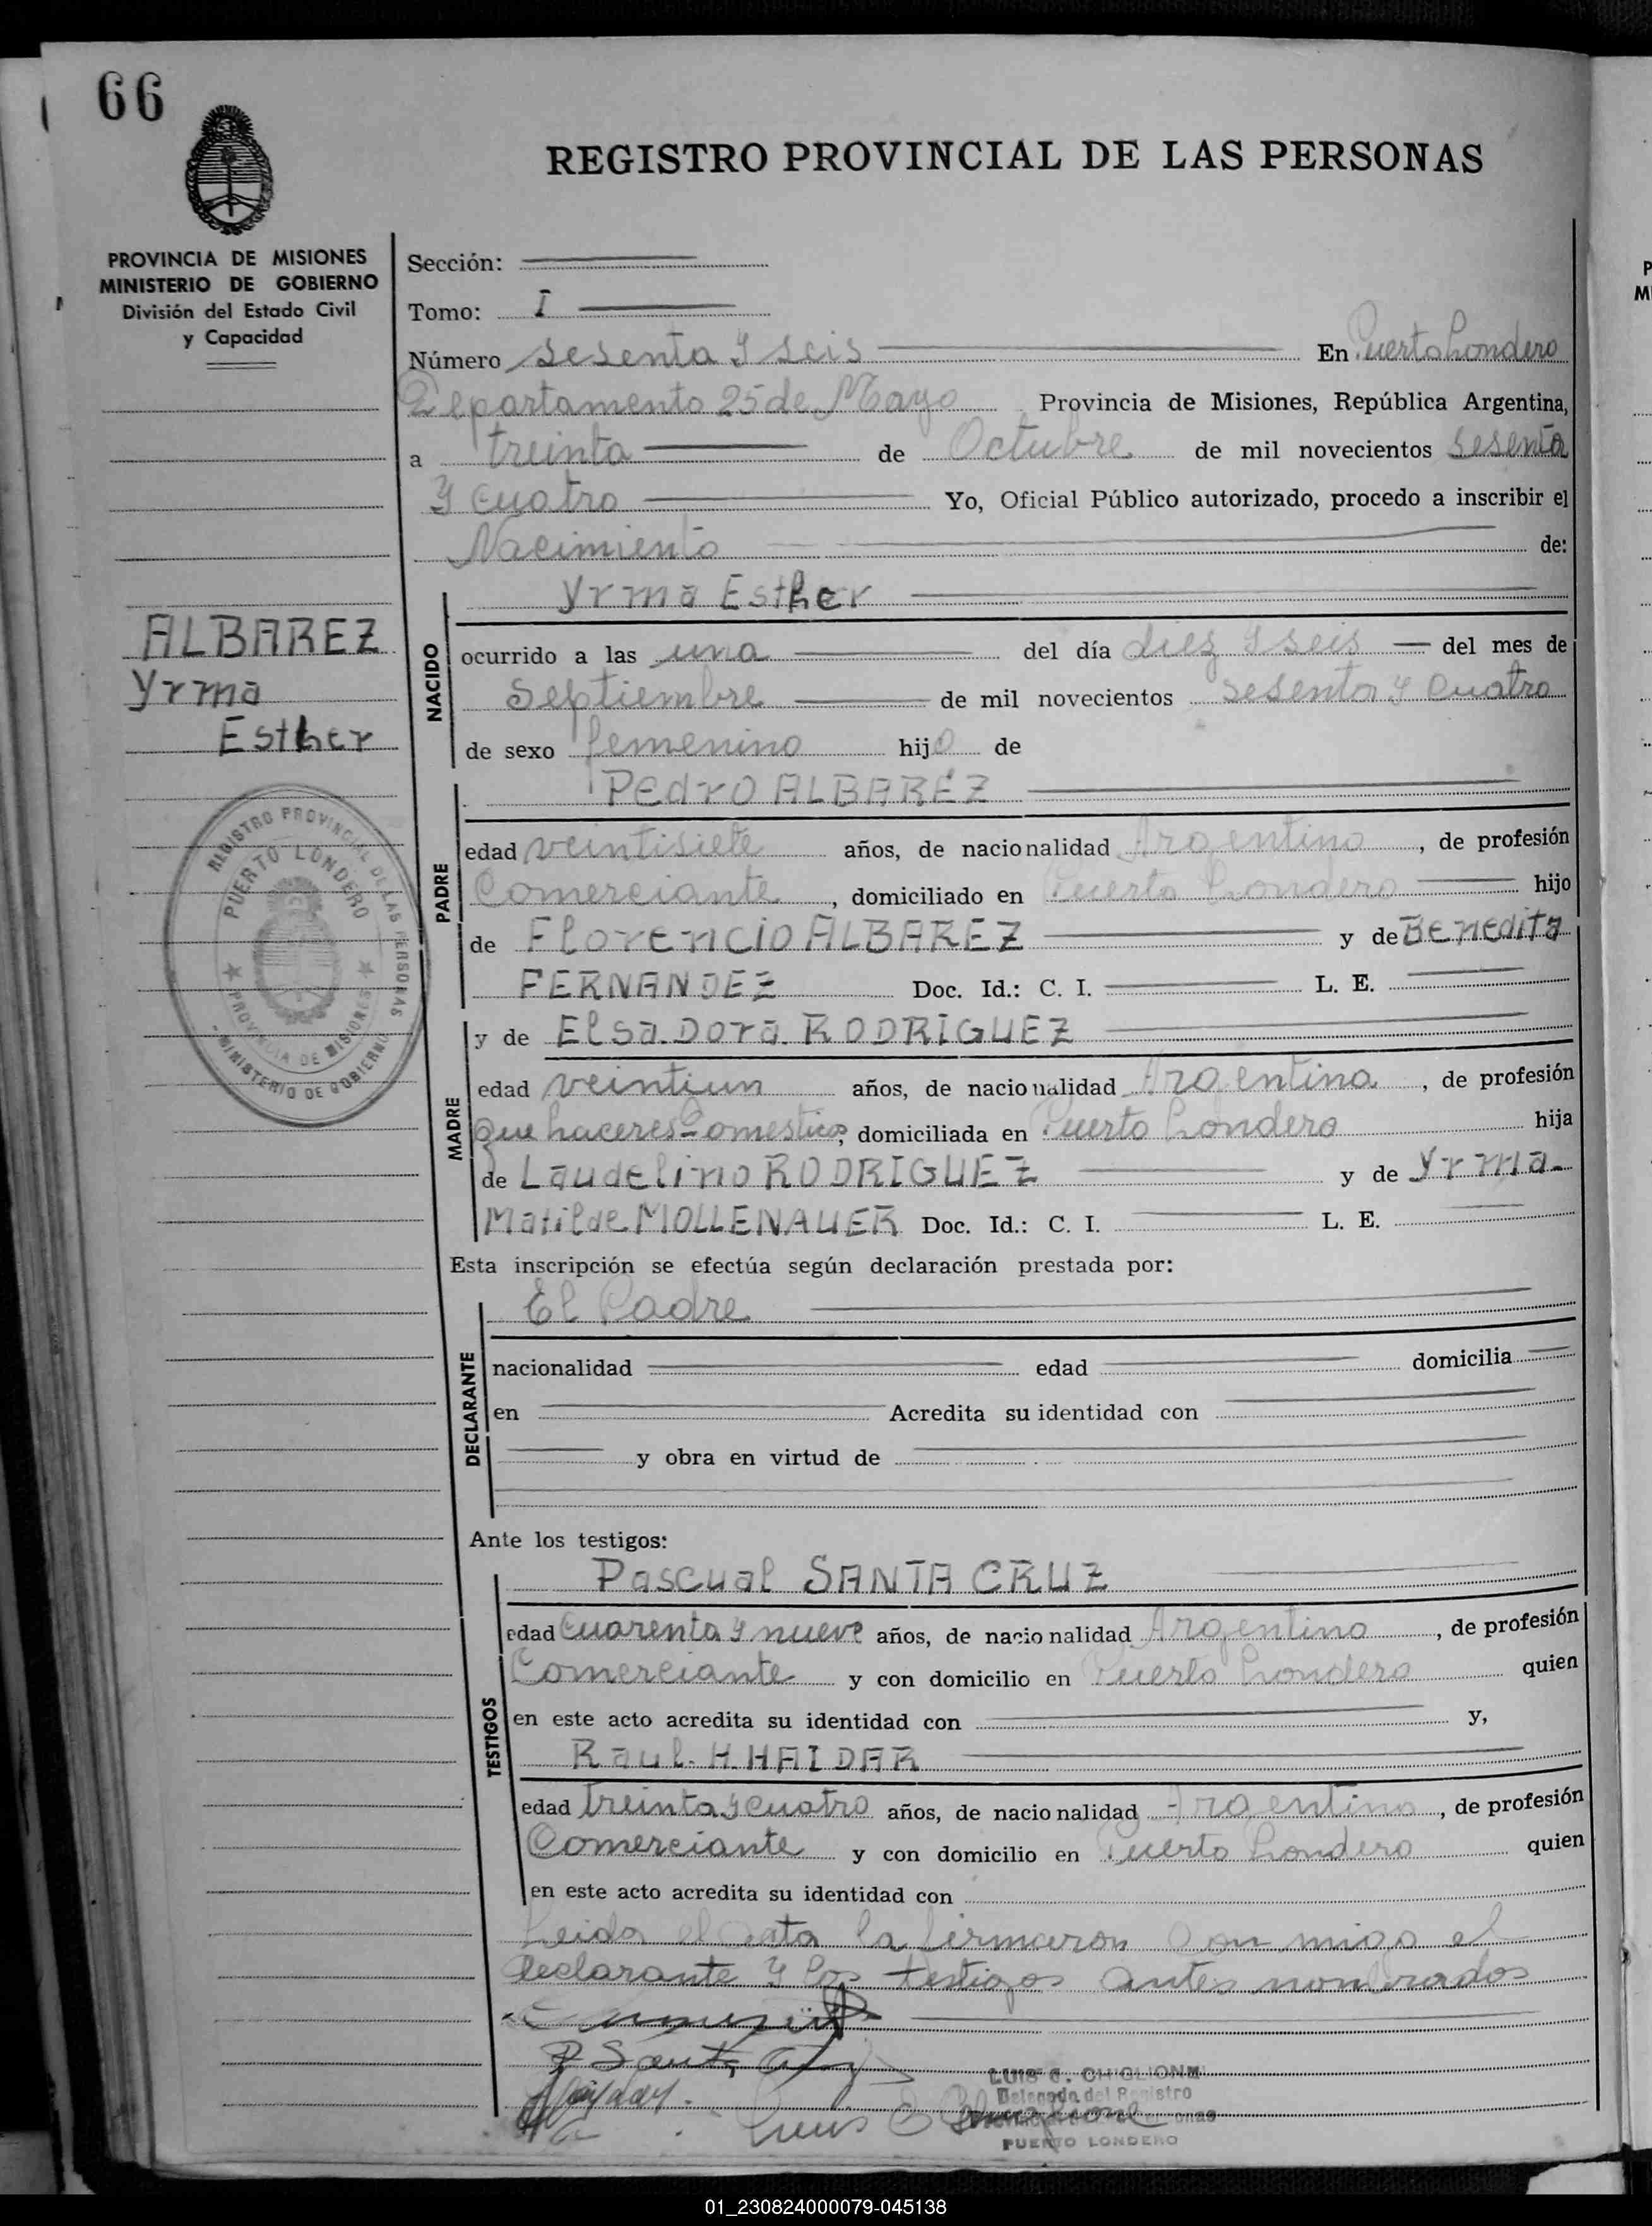 66
REGISTRO PROVINCIAL DE LAS PERSONAS
PROVINCIA DE MISIONES
MINISTERIO DE GOBIERNO
División del Estado Civil
y Capacidad
ALBAREZ
Yrma
Esther
REGISTRO PROVINCIAL DE LAS PERSONAS
PUERTO LONDERO
PROVINCIA DE MISIONES
MINISTERIO DE GOBIERNO
Sección:
Tomo: I
Número sesenta y seis En Puerto Londero
Departamento 25 de Mayo Provincia de Misiones, República Argentina,
a treinta de Octubre de mil novecientos sesenta
y cuatro Yo, Oficial Público autorizado, procedo a inscribir el
Nacimiento de:
Yrma Esther
NACIDO
ocurrido a las una del día diez y seis del mes de
Septiembre de mil novecientos sesenta y cuatro
de sexo femenino hijo de
Pedro ALBAREZ
PADRE
edad veintisiete años, de nacionalidad Argentino, de profesión
Comerciante, domiciliado en Puerto Londero hijo
de Florencio ALBAREZ y de Benedita
FERNANDEZ Doc. Id.: C. I. L. E.
y de Elsa Dora RODRIGUEZ
MADRE
edad veintiun años, de nacionalidad Argentina, de profesión
que haceres domiciliada en Puerto Londero hija
de Laudelino RODRIGUEZ y de Yrma
Matilde MOLLENAUER Doc. Id.: C. I. L. E.
Esta inscripción se efectúa según declaración prestada por:
El Padre
DECLARANTE
nacionalidad edad domicilia
en Acredita su identidad con
y obra en virtud de
Ante los testigos:
Pascual SANTA CRUZ
TESTIGOS
edad Cuarenta y nueve años, de nacionalidad Argentino, de profesión
Comerciante y con domicilio en Puerto Londero quien
en este acto acredita su identidad con y,
Raul.H.HAIDAR
edad treinta y cuatro años, de nacionalidad Argentino, de profesión
Comerciante y con domicilio en Puerto Londero quien
en este acto acredita su identidad con
Leida el acta la firmaron con migo el
declarante y los testigos antes nombrados
P Santa Cruz
LUIS C. CHIGLIONE
Delegado del Registro
Luis C
PUERTO LONDERO
01_230824000079-045138